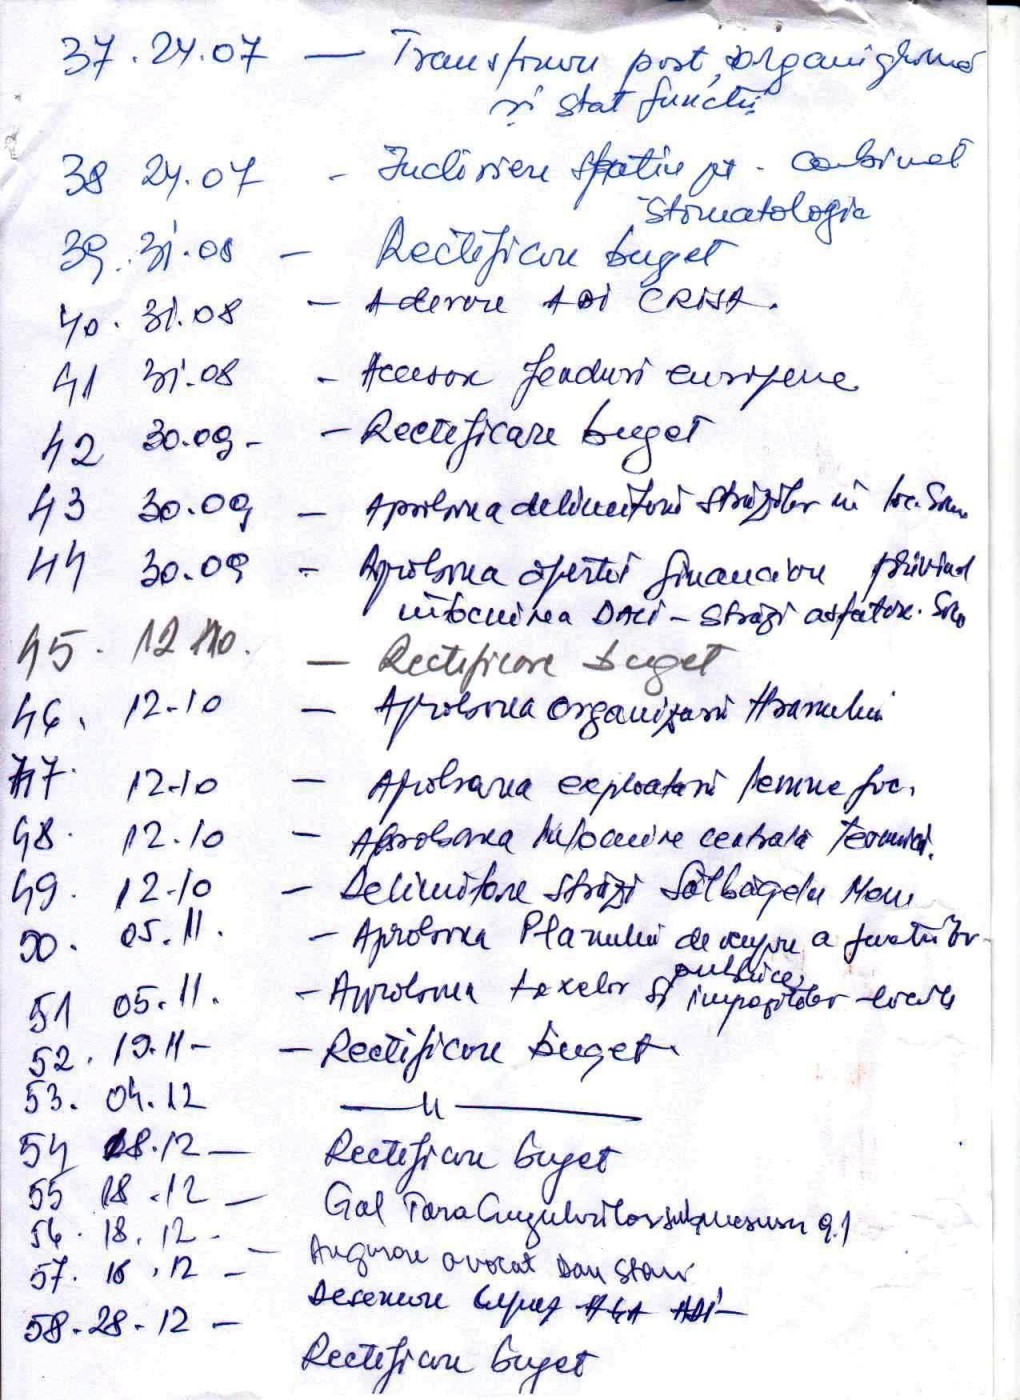 37. 24.07 — Transformare post, organigramă
și stat funcții
38 24.07 - Închiriere spațiu pt. cabinet
stomatologic
39. 31.08 — Rectificare buget
40. 31.08 — Aderare ADI CRISA.
41 31.08 - Accesare fonduri europene
42 30.09- - Rectificare buget
43 30.09 - Aprobarea delimitării străzilor în loc.
44 30.09 - Aprobarea ofertei financiare privind
întocmirea DALI - străzi asfaltare.
45. 12.10. — Rectificare buget
46. 12-10 — Aprobarea organizării Hramului
47. 12-10 — Aprobarea exploatării lemne foc.
48. 12.10 — Aprobarea întocmire centrală termică.
49. 12-10 — Delimitare străzi Sălbăgelu
50. 05.11. - Aprobarea Planului de ocupare a funcțiilor
publice
51 05.11. - Aprobarea taxelor și impozitelor locale
52. 19.11- — Rectificare buget
53. 04.12 —〃—
54 18.12 — Rectificare buget
55 18.12 — Gal Țara submăsura 9.1
56. 18.12. - Angajare avocat Dan Stan
57. 16.12 - Desemnare AGA ADI-
58. 28-12 - Rectificare buget